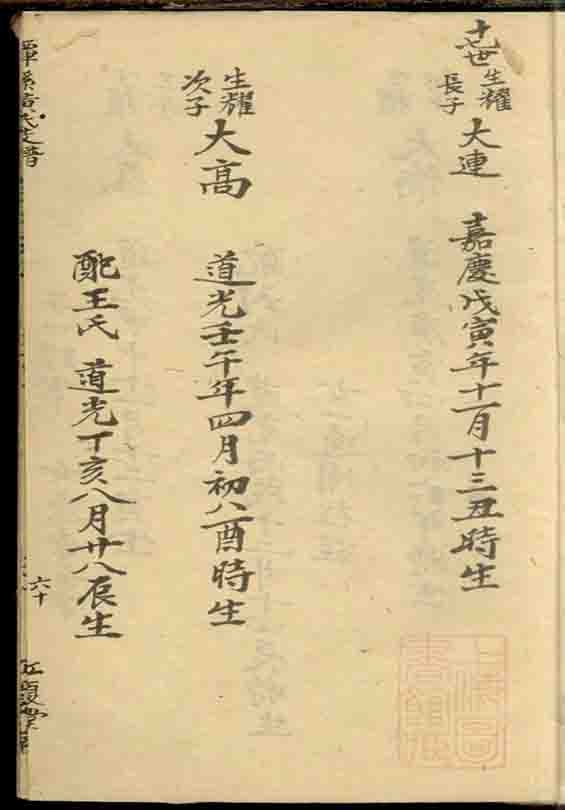 十七世
生耀
長子
大連 嘉慶戊寅年十一月十三丑時生
生耀
次子
大高 道光壬午年四月初八酉時生
配王氏 道光丁亥八月廿八辰生
氏支譜
六十